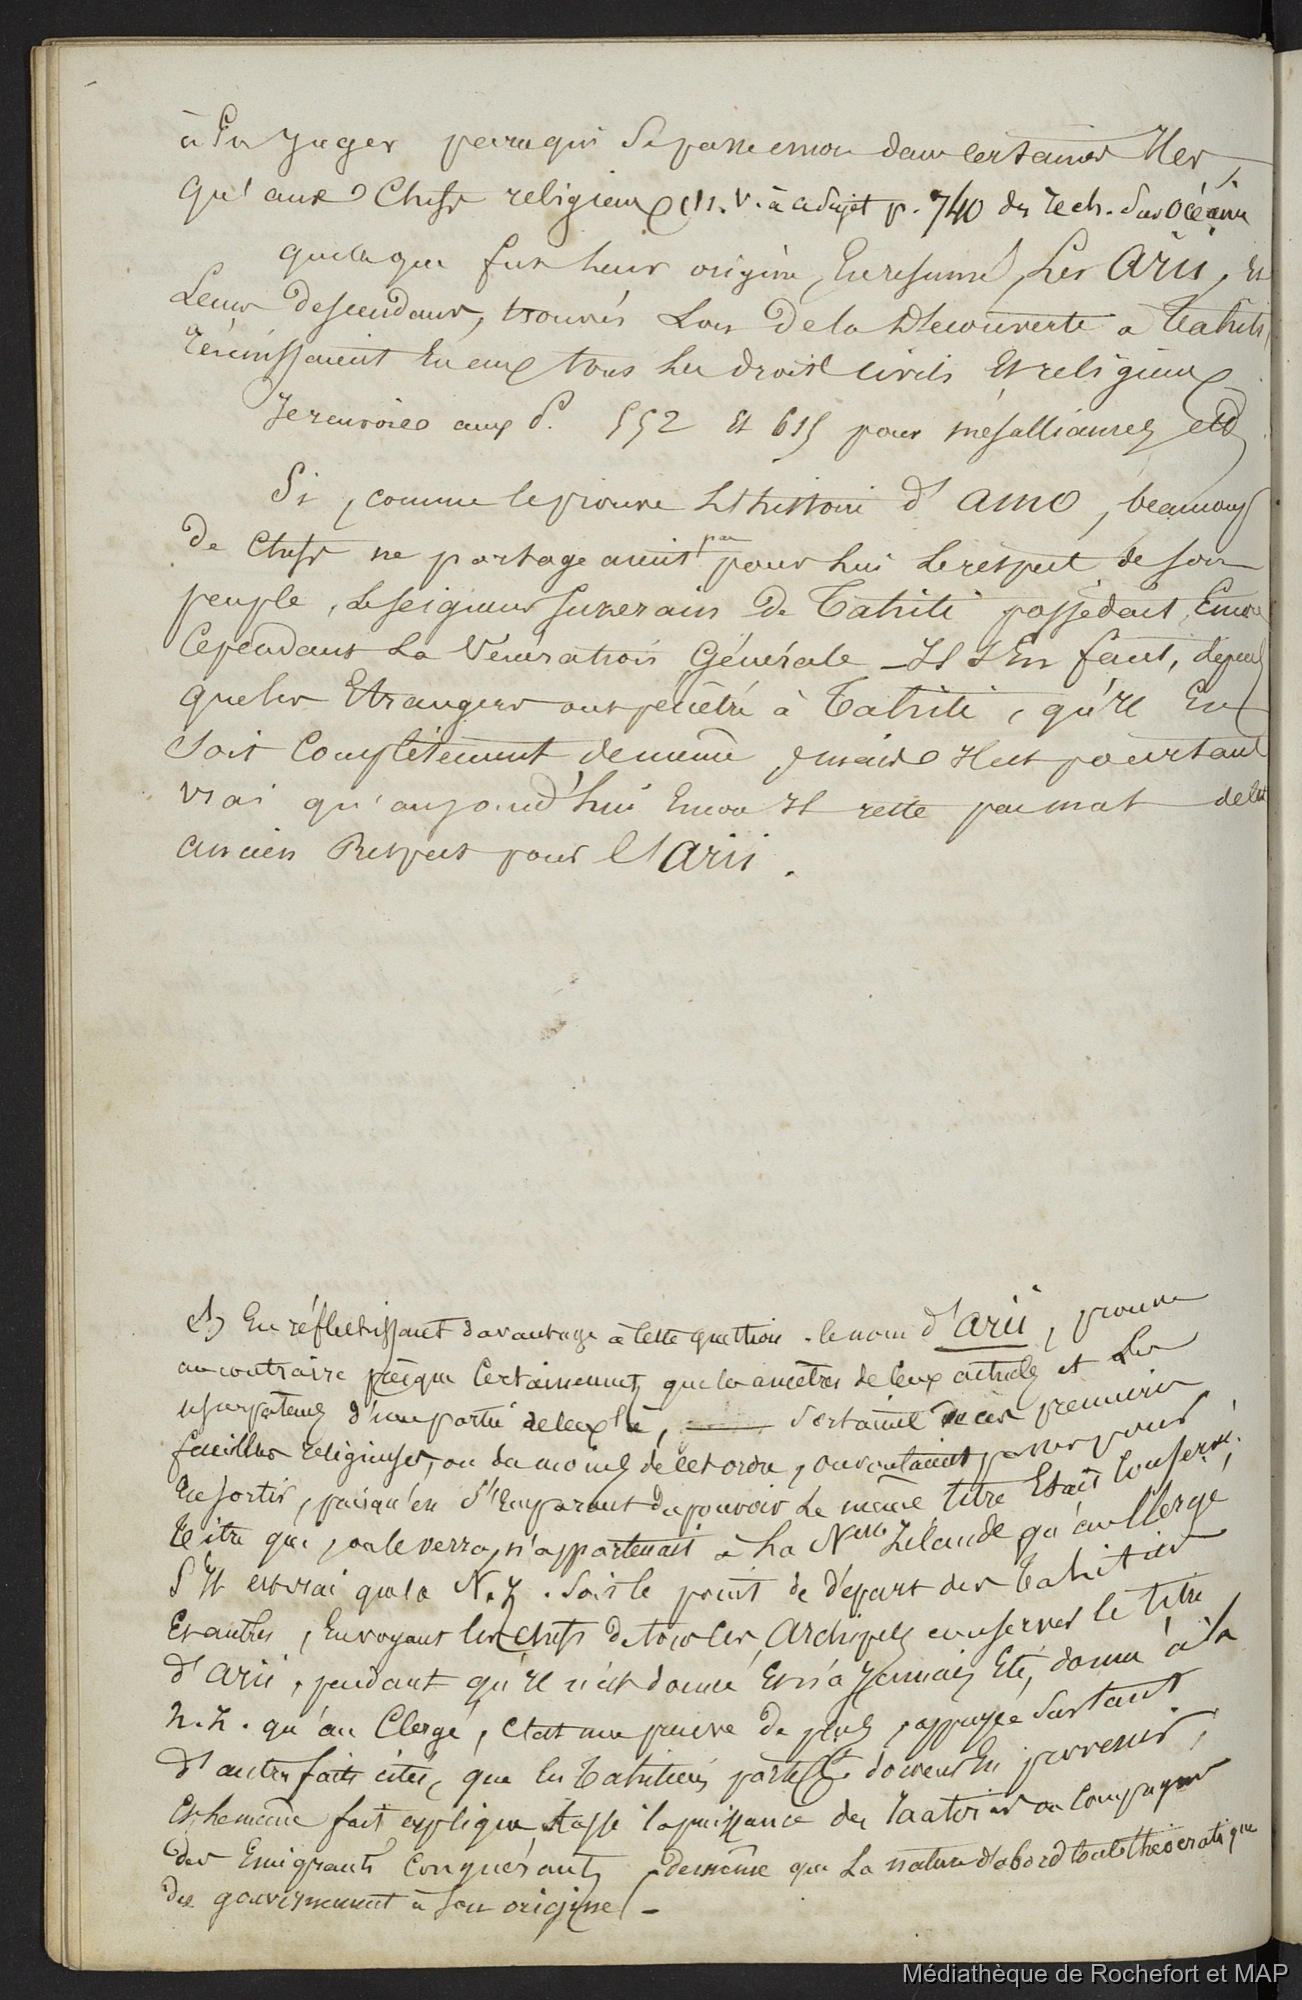 à En Juger par ce qui se passe encore dans certaines Iles,
qu'aux Chefs religieux (1). V. à ce sujet p. 740 des Rech. sur Océanie
quelle que fut leur origine, En résumé, Les Arii, Et
Leurs descendans, trouvés Lors De la Découverte à Tahiti,
réunissaient En eux tous les droits civils Et religieux
Je renvoie aux P. 552 Et 615 pour mésalliances, etc.
Si, comme le prouve L'histoire d'Amo, beaucoup
De Chefs ne partageaient pas pour lui le respect de son
peuple, Le seigneur suzerain De Tahiti possédait, Encore
Cependant La Vénération Générale – Il s'En faut, depuis
que les Etrangers ont pénétré à Tahiti, qu'Il En
soit Complètement de même, mais Il est pourtant
vrai qu'aujourd'hui Encore Il reste pas mal de cet
ancien Respect pour l'Arii.
(1) En réfléchissant davantage à cette question. le nom d'Arii, prouve
au contraire presque Certainement, que les ancêtres de Ceux actuels et Les
usurpateurs d'une partie de , sortaient de ces premières
familles religieuses, ou du moins de cet ordre, ou voulaient passer pour
En sortir, puisqu'en S'Emparant du pouvoir Le même titre Etait Conservé;
Titre qui, on le verra, n'appartenait à La Nelle Zélande qu'au Clergé
S'Il est vrai que la N. Z. soit le point de départ des Tahitiens
Et autres, En voyant les chefs de tous les Archipels conserver le titre
d'Arii, pendant qu'Il n'est donné Et n'a Jamais Eté, donné à la
N. Z. qu'au Clergé, C'est une preuve De plus, appuyée sur tant
d'autres faits cités, que les Tahitiens doivent En provenir,
Et le même fait explique la puissance des Raatiras ou Compagnons
des Emigrants Conquérants, De même que La nature d'abord toute théocratique
du gouvernement à son origine –
Médiathèque de Rochefort et MAP